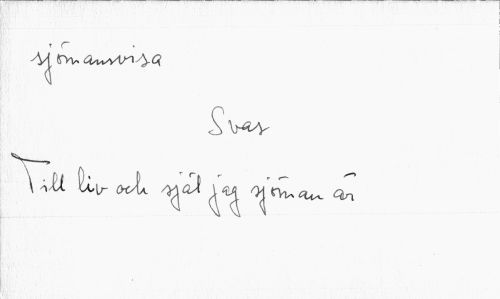 sjömansvisa
Svar
Till liv och själ jag sjöman är